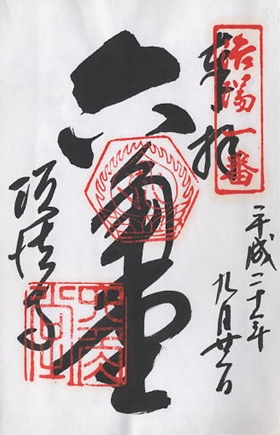 奉拝
洛陽一番
平成二十一年
九月廿一日
六角堂
頂法寺